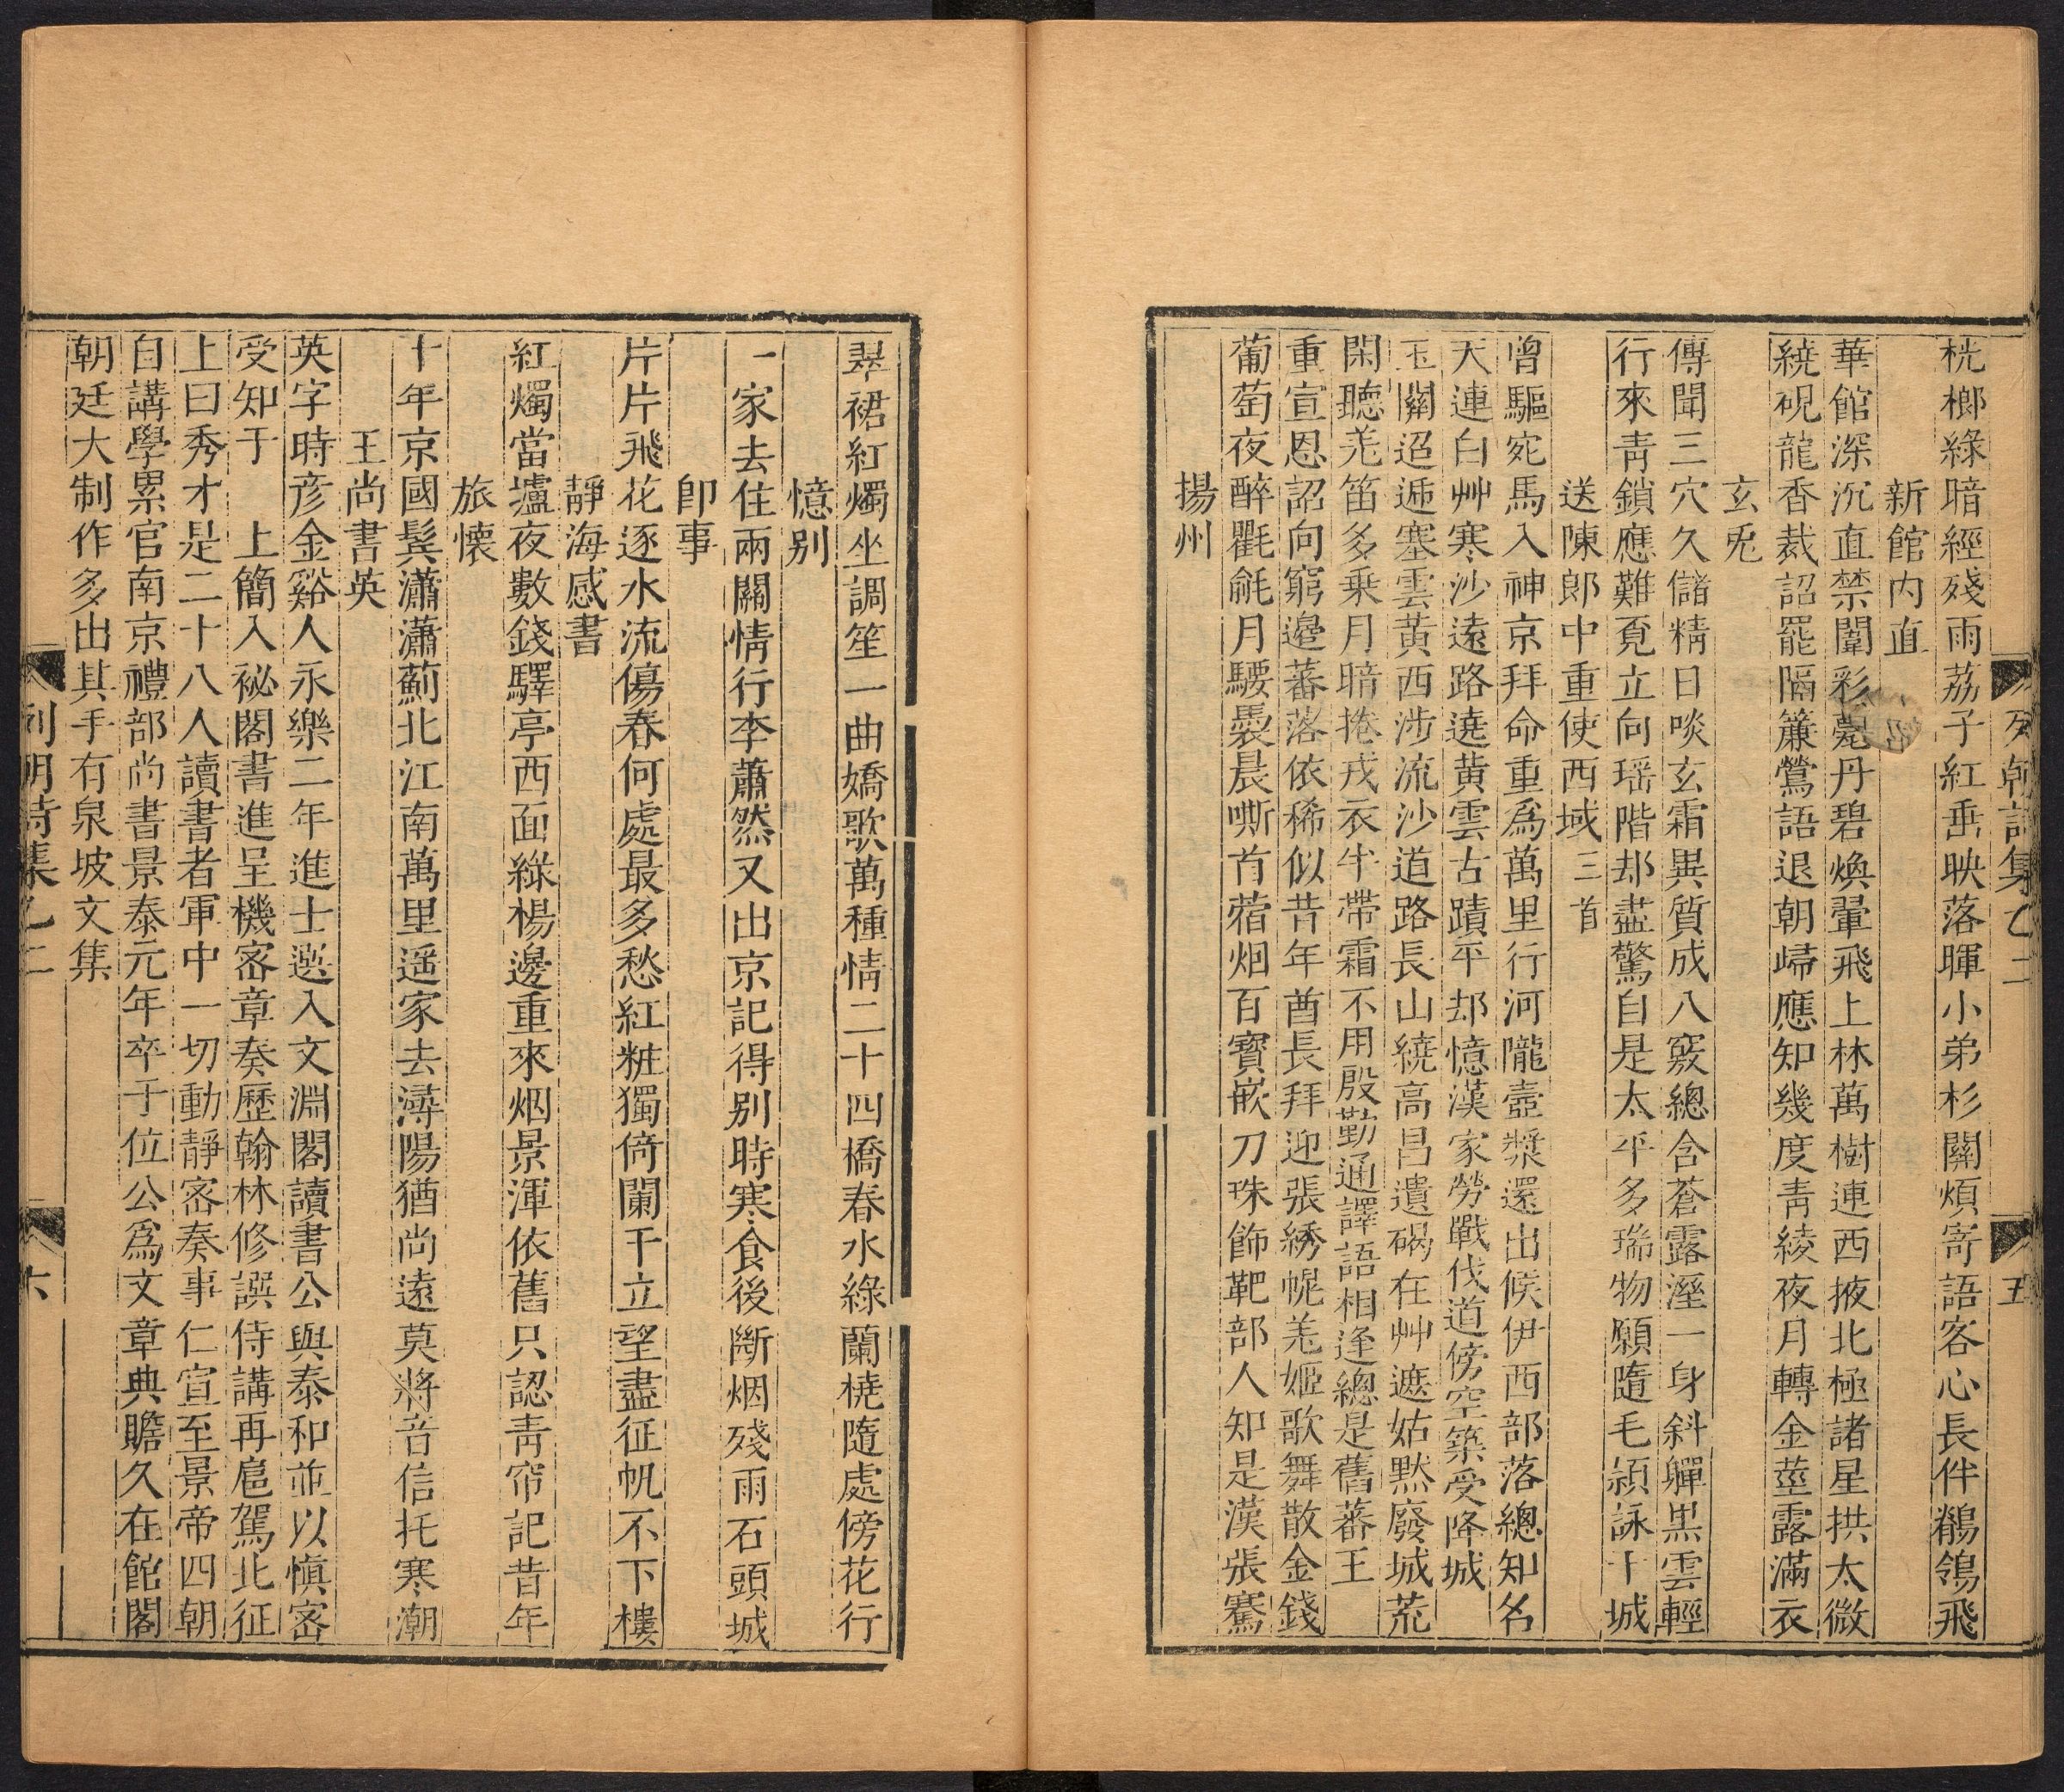 列朝詩集乙二
五
桄榔綠暗經殘雨荔子紅垂映落暉小弟杉關煩寄語客心長伴鶺鴒飛
新館內直
華館深沉直禁闈彩甍丹碧煥翬飛上林萬樹連西掖北極諸星拱太微
繞硯龍香裁詔罷隔簾鶯語退朝歸應知幾度青綾夜月轉金莖露滿衣
玄兎
傳聞三穴久儲精日啖玄霜異質成八竅總含蒼露溼一身斜軃黒雲輕
行來青鎖應難覓立向瑶階却盡驚自是太平多瑞物願隨毛穎詠干城
送陳郎中重使西域三首
曾驅宛馬入神京拜命重爲萬里行河隴壺漿還出候伊西部落總知名
天連白艸寒沙遠路遶黃雲古蹟平却憶漢家勞戰伐道傍空築受降城
玉關迢遞塞雲黃西涉流沙道路長山繞高昌遺碣在艸遮姑黙廢城荒
閑聽羌笛多乗月暗捲戎衣半帶霜不用殷勤通譯語相逢總是舊蕃王
重宣恩詔向窮邊蕃落依稀似昔年酋長拜迎張綉幄羌姬歌舞散金錢
葡萄夜醉氍毹月騕褭晨嘶苜蓿烟百寳嵌刀珠飾靶部人知是漢張騫
揚州
翠裙紅燭坐調笙一曲嬌歌萬種情二十四橋春水綠蘭橈隨處傍花行
憶别
一家去住兩關情行李蕭然又出京記得别時寒食後斷烟殘雨石頭城
卽事
片片飛花逐水流傷春何處最多愁紅粧獨倚闌干立望盡征帆不下樓
靜海感書
紅燭當壚夜數錢驛亭西面綠楊邊重來烟景渾依舊只認青帘記昔年
旅懷
十年京國鬂瀟瀟薊北江南萬里遥家去潯陽猶尚遠莫將音信托寒潮
王尚書英
英字時彦金谿人永樂二年進士選入文淵閣讀書公與泰和並以愼密
受知于　上簡入祕閣書進呈機密章奏歷翰林修譔侍講再扈駕北征
上曰秀才是二十八人讀書者軍中一切動靜密奏事仁宣至景帝四朝
自講學累官南京禮部尚書景泰元年卒于位公爲文章典贍久在館閣
朝廷大制作多出其手有泉坡文集
列朝詩集乙二
六